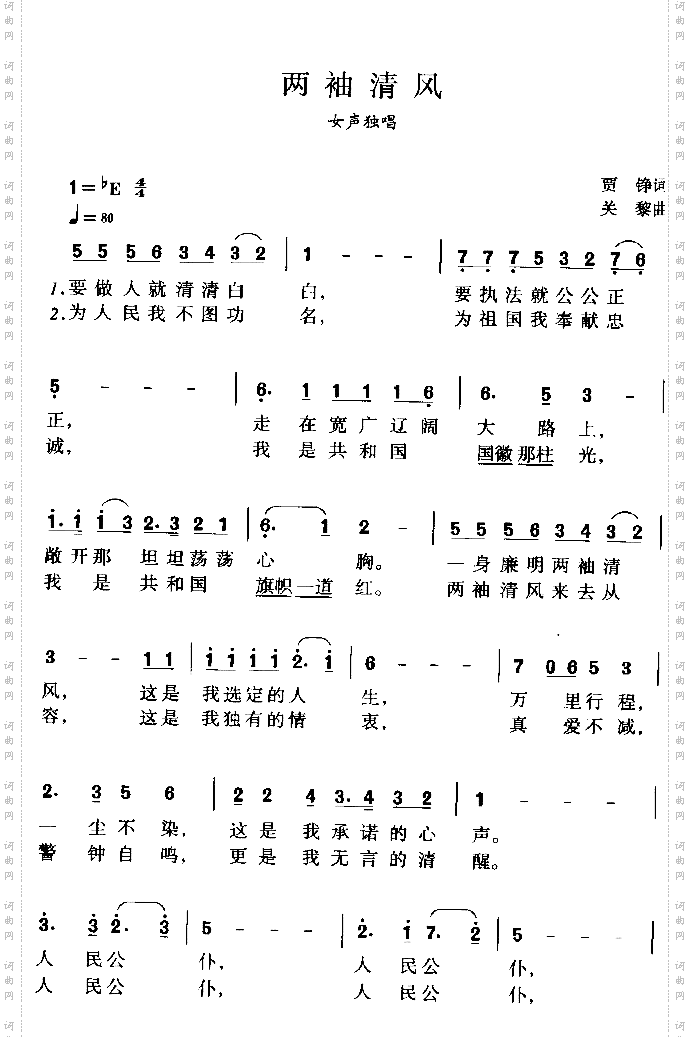 两袖清风
女声独唱
1=♭E 4/4
贾 铮词
♩=80
关 黎曲
5 5 5 6 3 4 3 2 | 1 - - - | 7 7 7 5 3 2 7 6
1.要做人就清清白 白, 要执法就公公正
2.为人民我不图功 名, 为祖国我奉献忠
5 - - - | 6. 1 1 1 1 6 | 6. 5 3 -
正, 走 在宽广辽阔 大 路上,
诚, 我 是共和国 国徽那柱光,
1. 1 1 3 2. 3 2 1 | 6. 1 2 - | 5 5 5 6 3 4 3 2
敞开那 坦坦荡荡 心 胸。 一身廉明两袖清
我是 共和国 旗帜一道红。 两袖清风来去从
3 - - 1 1 | 1 1 1 1 2. 1 | 6 - - - | 7 0 6 5 3
风, 这是 我选定的人 生, 万 里行程,
容, 这是 我独有的情 衷, 真 爱不减,
2. 3 5 6 | 2 2 4 3. 4 3 2 | 1 - - -
一 尘不 染, 这是 我 承诺的心 声。
警 钟自 鸣, 更是 我 无言的清 醒。
3. 3 2. 3 | 5 - - - | 2. 1 7. 2 | 5 - - -
人 民公 仆, 人 民公 仆,
人 民公 仆, 人 民公 仆,